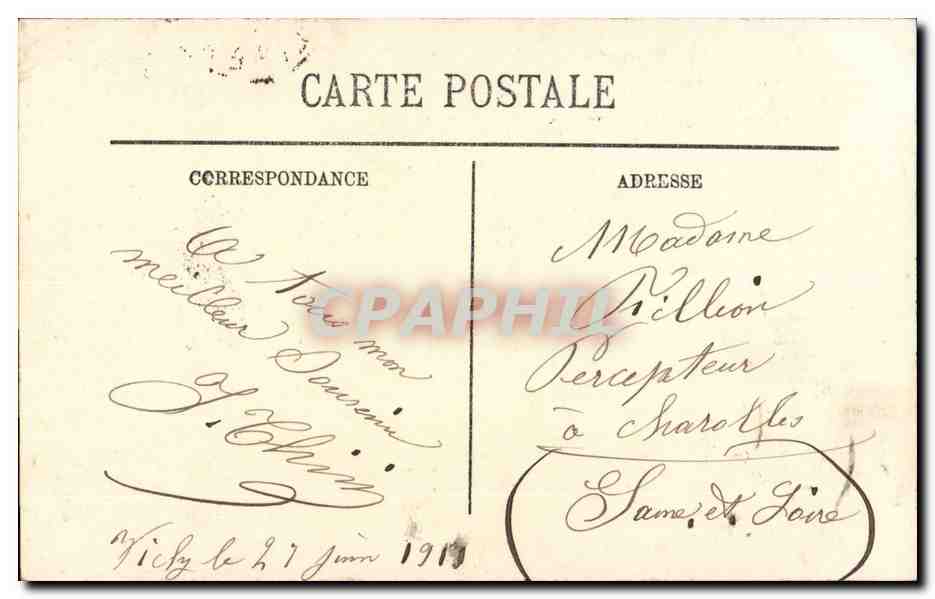 CARTE POSTALE
CORRESPONDANCE
A tous mon
meilleur Souvenir
Vichy le 27 juin 191
ADRESSE
Madame
Pillion
Percepteur
à Charolles
Saône et Loire
CPAPHIL